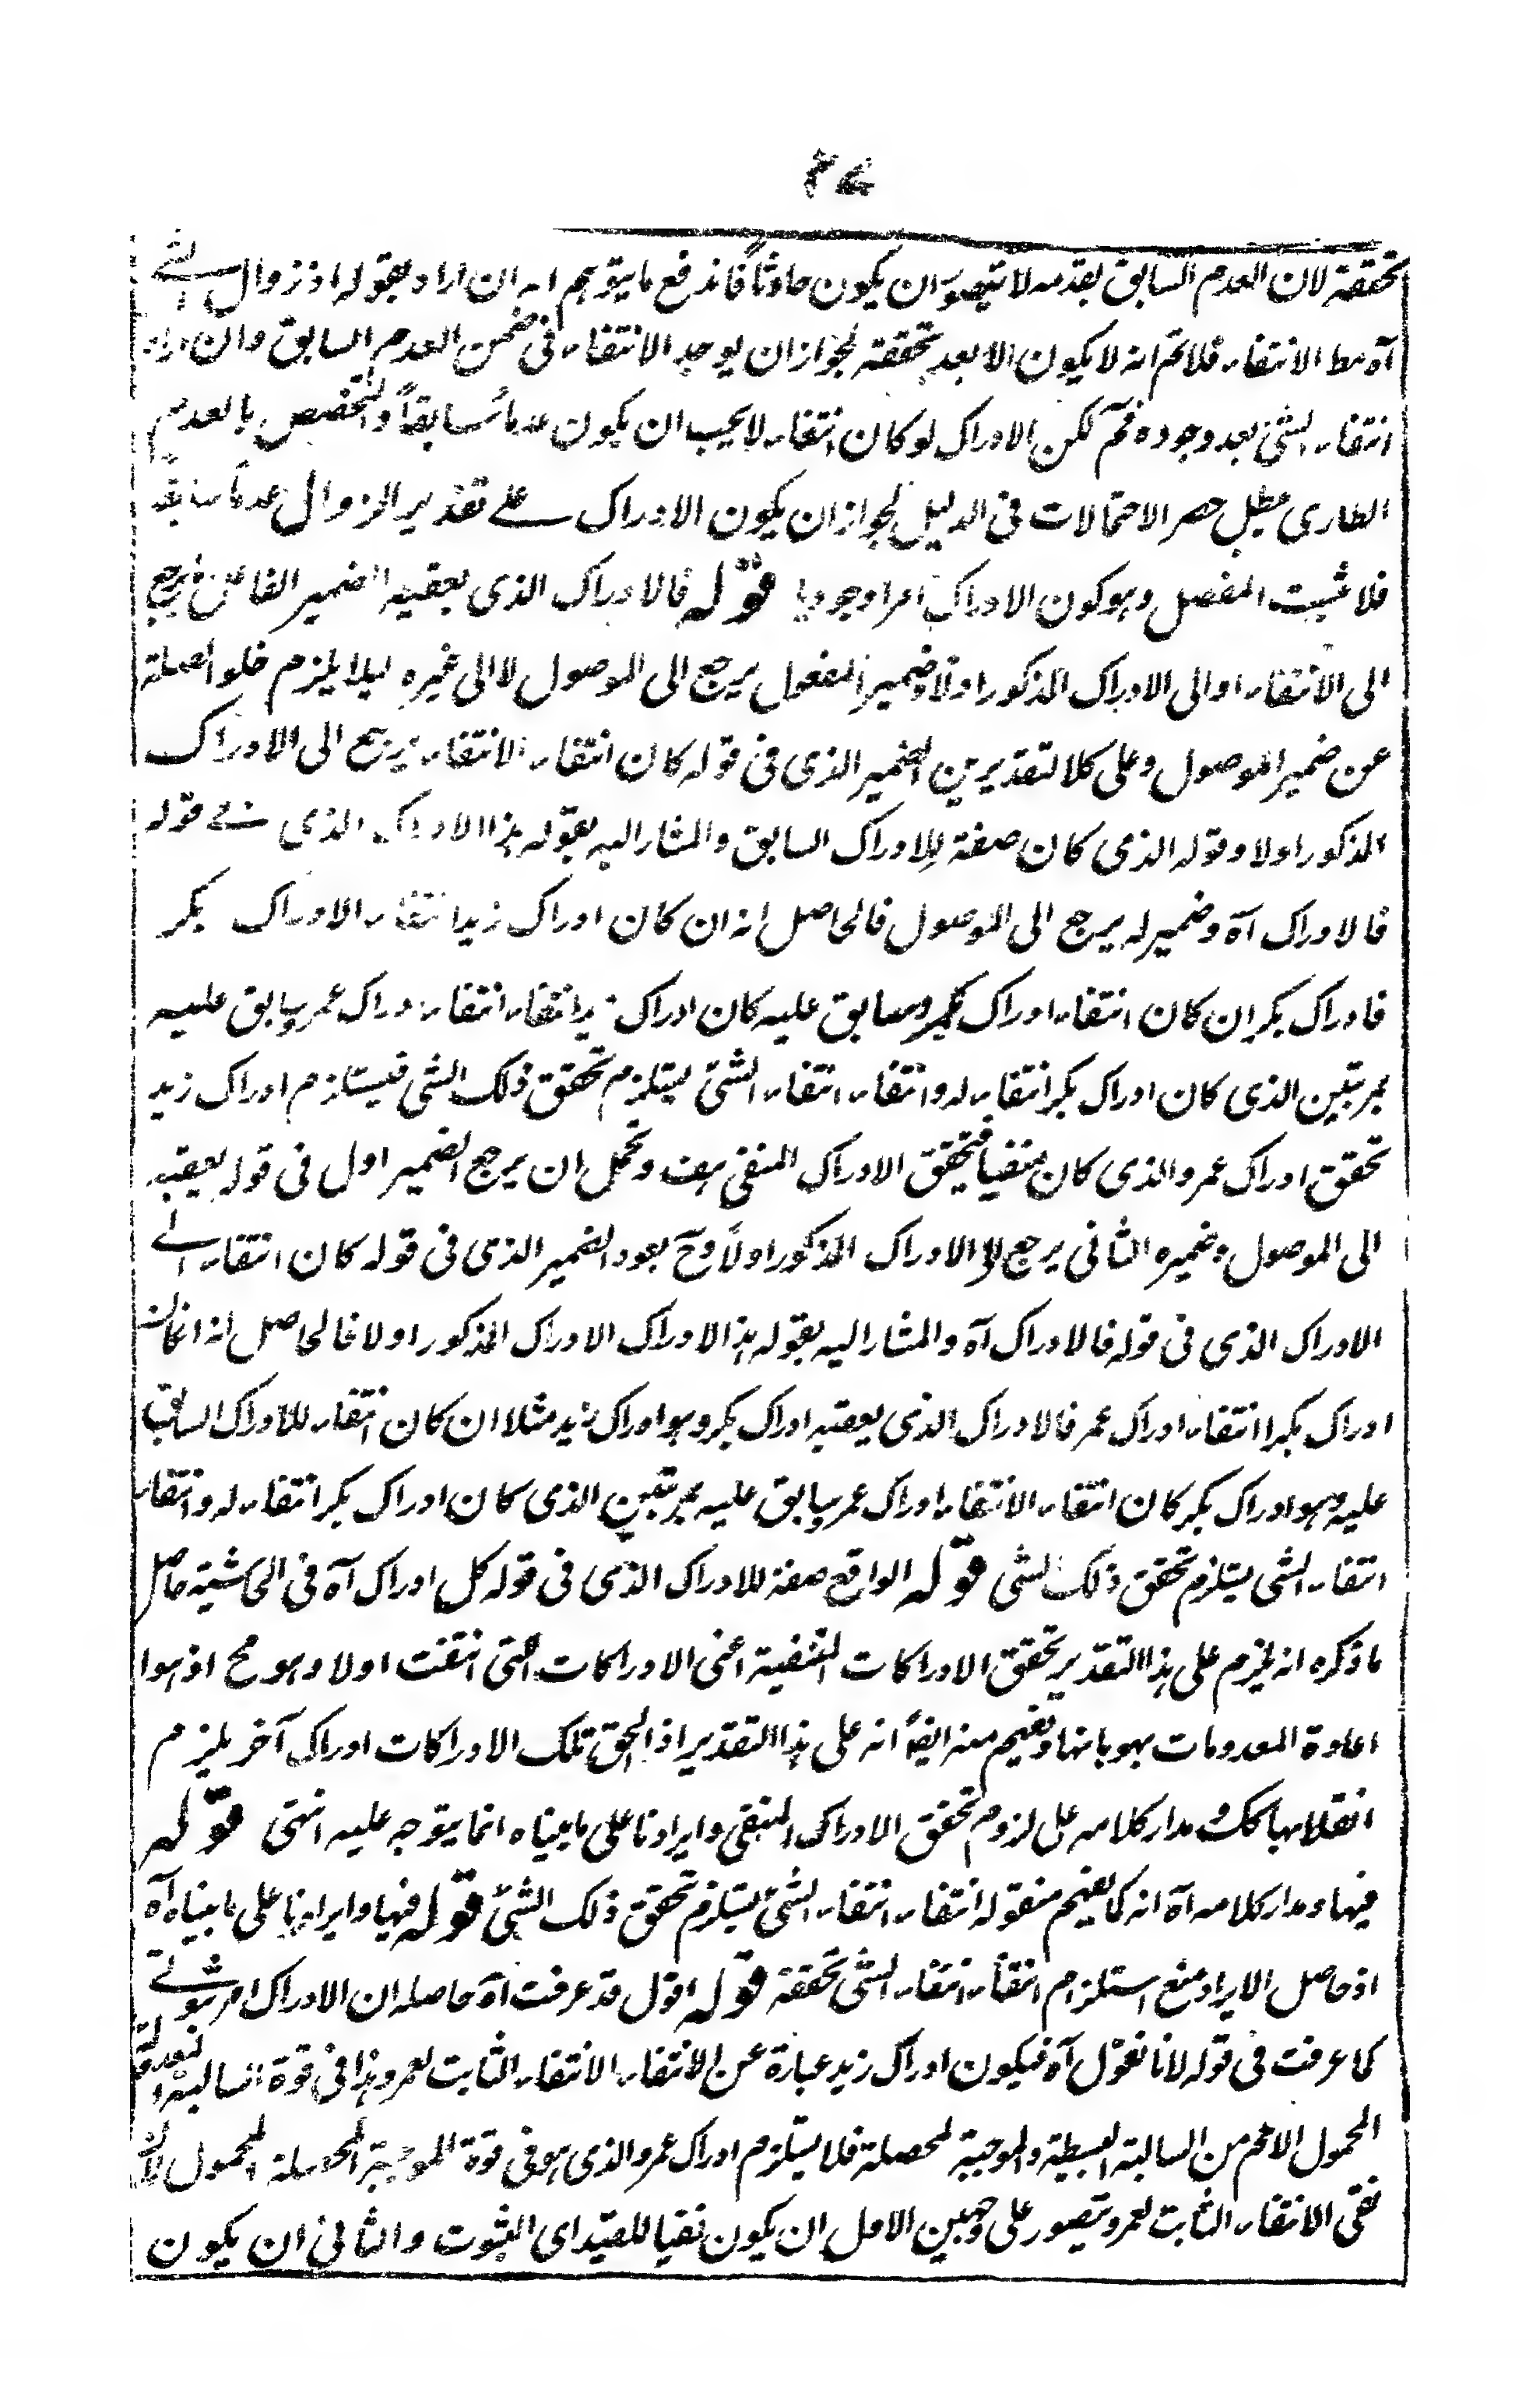 ۲۷
تحققة لان العدم السابق بقدمه لا يتصور ان يكون حادثاً فاندفع ما يتوهم انه ان اراد بقوله اذ زوال الشے
آه مط الانتفاء فلانم انه لا يكون الا بعد تحققة لجواز ان يوجد الانتفاء فى ضمن العدم السابق وان اراد
انتفاء الشئ بعد وجوده فم لكن الادراك لو كان انتفاء لا يجب ان يكون عدماً سابقاً والتخصيص بالعدم
الطارى يبطل حصر الاحتمالات فى الدليل لجواز ان يكون الادراك علے تقدير الزوال عدماً سابقا
فلا يثبت المفصل وهو كون الادراك امرا وجوديا قوله فالادراك الذى يعقبه الضمير الفاعل يرجع
الى الانتفاء او الى الادراك المذكور اولا وضمير المفعول يرجع الى الموصول لا الى غيره ليلا يلزم خلو الصلة
عن ضمير الموصول وعلى كلا لتقديرين الضمير الذى فى قوله كان انتفاء الانتفاء يرجع الى الادراك
المذكور اولا وقوله الذى كان صفة للادراك السابق والمشار اليه بقوله هذا الادراك الذى فے قوله
فالادراك آه وضمير له يرجع الى الموصول فالحاصل انه ان كان ادراك زيد انتفاء الادراك بكر
فادراك بكر ان كان انتفاء ادراك عمرو سابق عليه كان ادراك زيد انتفاء انتفاء ادراك عمرو سابق عليه
بمرتبتين الذى كان ادراك بكر انتفاء له وانتفاء انتفاء الشئ يستلزم تحقق ذلك الشئ فيستلزم ادراك زيد
تحقق ادراك عمرو الذى كان منتفيا فيتحقق الادراك المنفى هف ويحتمل ان يرجع الضمير اول فى قوله يعقبه
الى الموصول وضميره الثانى يرجع الى الادراك المذكور اولاً وح يعود الضمير الذى فى قوله كان انتفاء الے
الادراك الذى فى قوله فالادراك آه والمشار اليه بقوله هذا الادراك الادراك المذكور اولا فالحاصل انه اذا كان
ادراك بكر انتفاء ادراك عمر فالادراك الذى يعقبه ادراك بكر وهو ادراك زيد مثلا ان كان انتفاء للادراك السابق
عليه وهو ادراك بكر كان انتفاء الانتفاء ادراك عمرو سابق عليه بمرتبتين الذى كان ادراك بكر انتفاء له وانتفاء
انتفاء الشئ يستلزم تحقق ذلك الشئ قوله الواقع صفة للادراك الذى فى قوله كل ادراك آه فى الحاشية حاصل
ما ذكره انه يلزم على هذا التقدير تحقق الادراكات المنتفية اعنى الادراكات التى انتفت اولا وهو مح اذ هو
اعادة المعدومات بهوياتها ويفهم منه ايضاً انه على هذا التقدير اذا لحق تلك الادراكات ادراك آخر يلزم
انقلابها كك ومدار كلامه على لزوم تحقق الادراك المنفى وايرادنا على ما بيناه انما يتوجه عليه انتهى قوله
فيها ومدار كلامه آه انه كما يفهم من قوله انتفاء انتفاء الشئ يستلزم تحقق ذلك الشئ قوله فيها وايرادنا على ما بيناه آه
اذ حاصل الايراد منع استلزام انتفاء انتفاء الشئ تحققة قوله اقول قد عرفت آه حاصله ان الادراك امر ثبوتے
كما عرفت فى قوله لانا نقول آه فيكون ادراك زيد عبارة عن الانتفاء الانتفاء الثابت لعمرو وهذا فى قوة السالبة المعدولة
المحمول الاعم من السالبة البسيطة والموجبة المحصلة فلا يستلزم ادراك عمرو الذى هو فى قوة الموجبة المحصلة المحمول لان
نفى الانتفاء الثابت لعمرو يتصور على وجهين الاول ان يكون نفيا للقيد اى الثبوت والثانى ان يكون